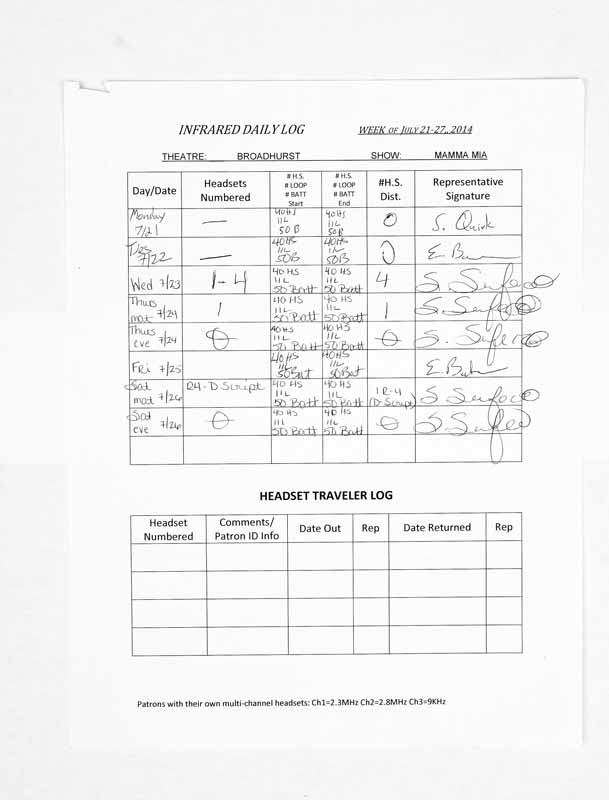 INFRARED DAILY LOG WEEK OF JULY 21-27, 2014
THEATRE: BROADHURST SHOW: MAMMA MIA
Day/Date Headsets Numbered # H.S. # LOOP # BATT Start # H.S. # LOOP # BATT End #H.S. Dist. Representative Signature
Monday 7/21 — 40HS 11L 50B 40HS 11L 50B 0 S. Quirk
Tues 7/22 — 40HS 11L 50B 40HS 11L 50B 0 E.
Wed 7/23 1-4 40 HS 11L 50 Batt 40 HS 11L 50 Batt 4 S.
Thurs mat 7/24 1 40 HS 11L 50 Batt 40 HS 11L 50 Batt 1 S.
Thurs eve 7/24 0 40 HS 11L 50 Batt 40 HS 11L 50 Batt 0 S.
Fri 7/25 40HS 11L 50Bat 40HS 11L 50Bat E.
Sat mat 7/26 R4-D Script 40 HS 11L 50 Batt 40 HS 11L 50 Batt 1 R-4 (D-Script) S
Sat eve 7/26 0 40 HS 11L 50 Batt 40 HS 11L 50 Batt 0 S.
HEADSET TRAVELER LOG
Headset Numbered Comments/ Patron ID Info Date Out Rep Date Returned Rep
Patrons with their own multi-channel headsets: Ch1=2.3MHz Ch2=2.8MHz Ch3=9KHz